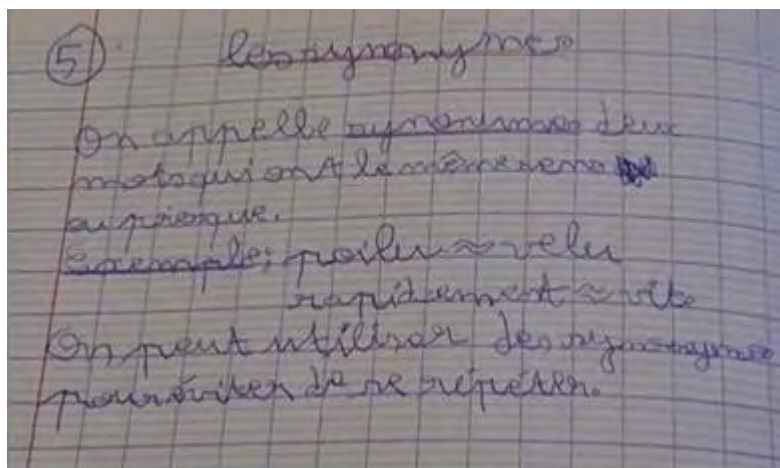 5 les synonymes
On appelle synonimes deux
mots qui ont le même sens
ou presque.
Exemple : poilu ≈ velu
rapidement ≈ vite
On peut utiliser des synonymes
pour éviter de se répéter.